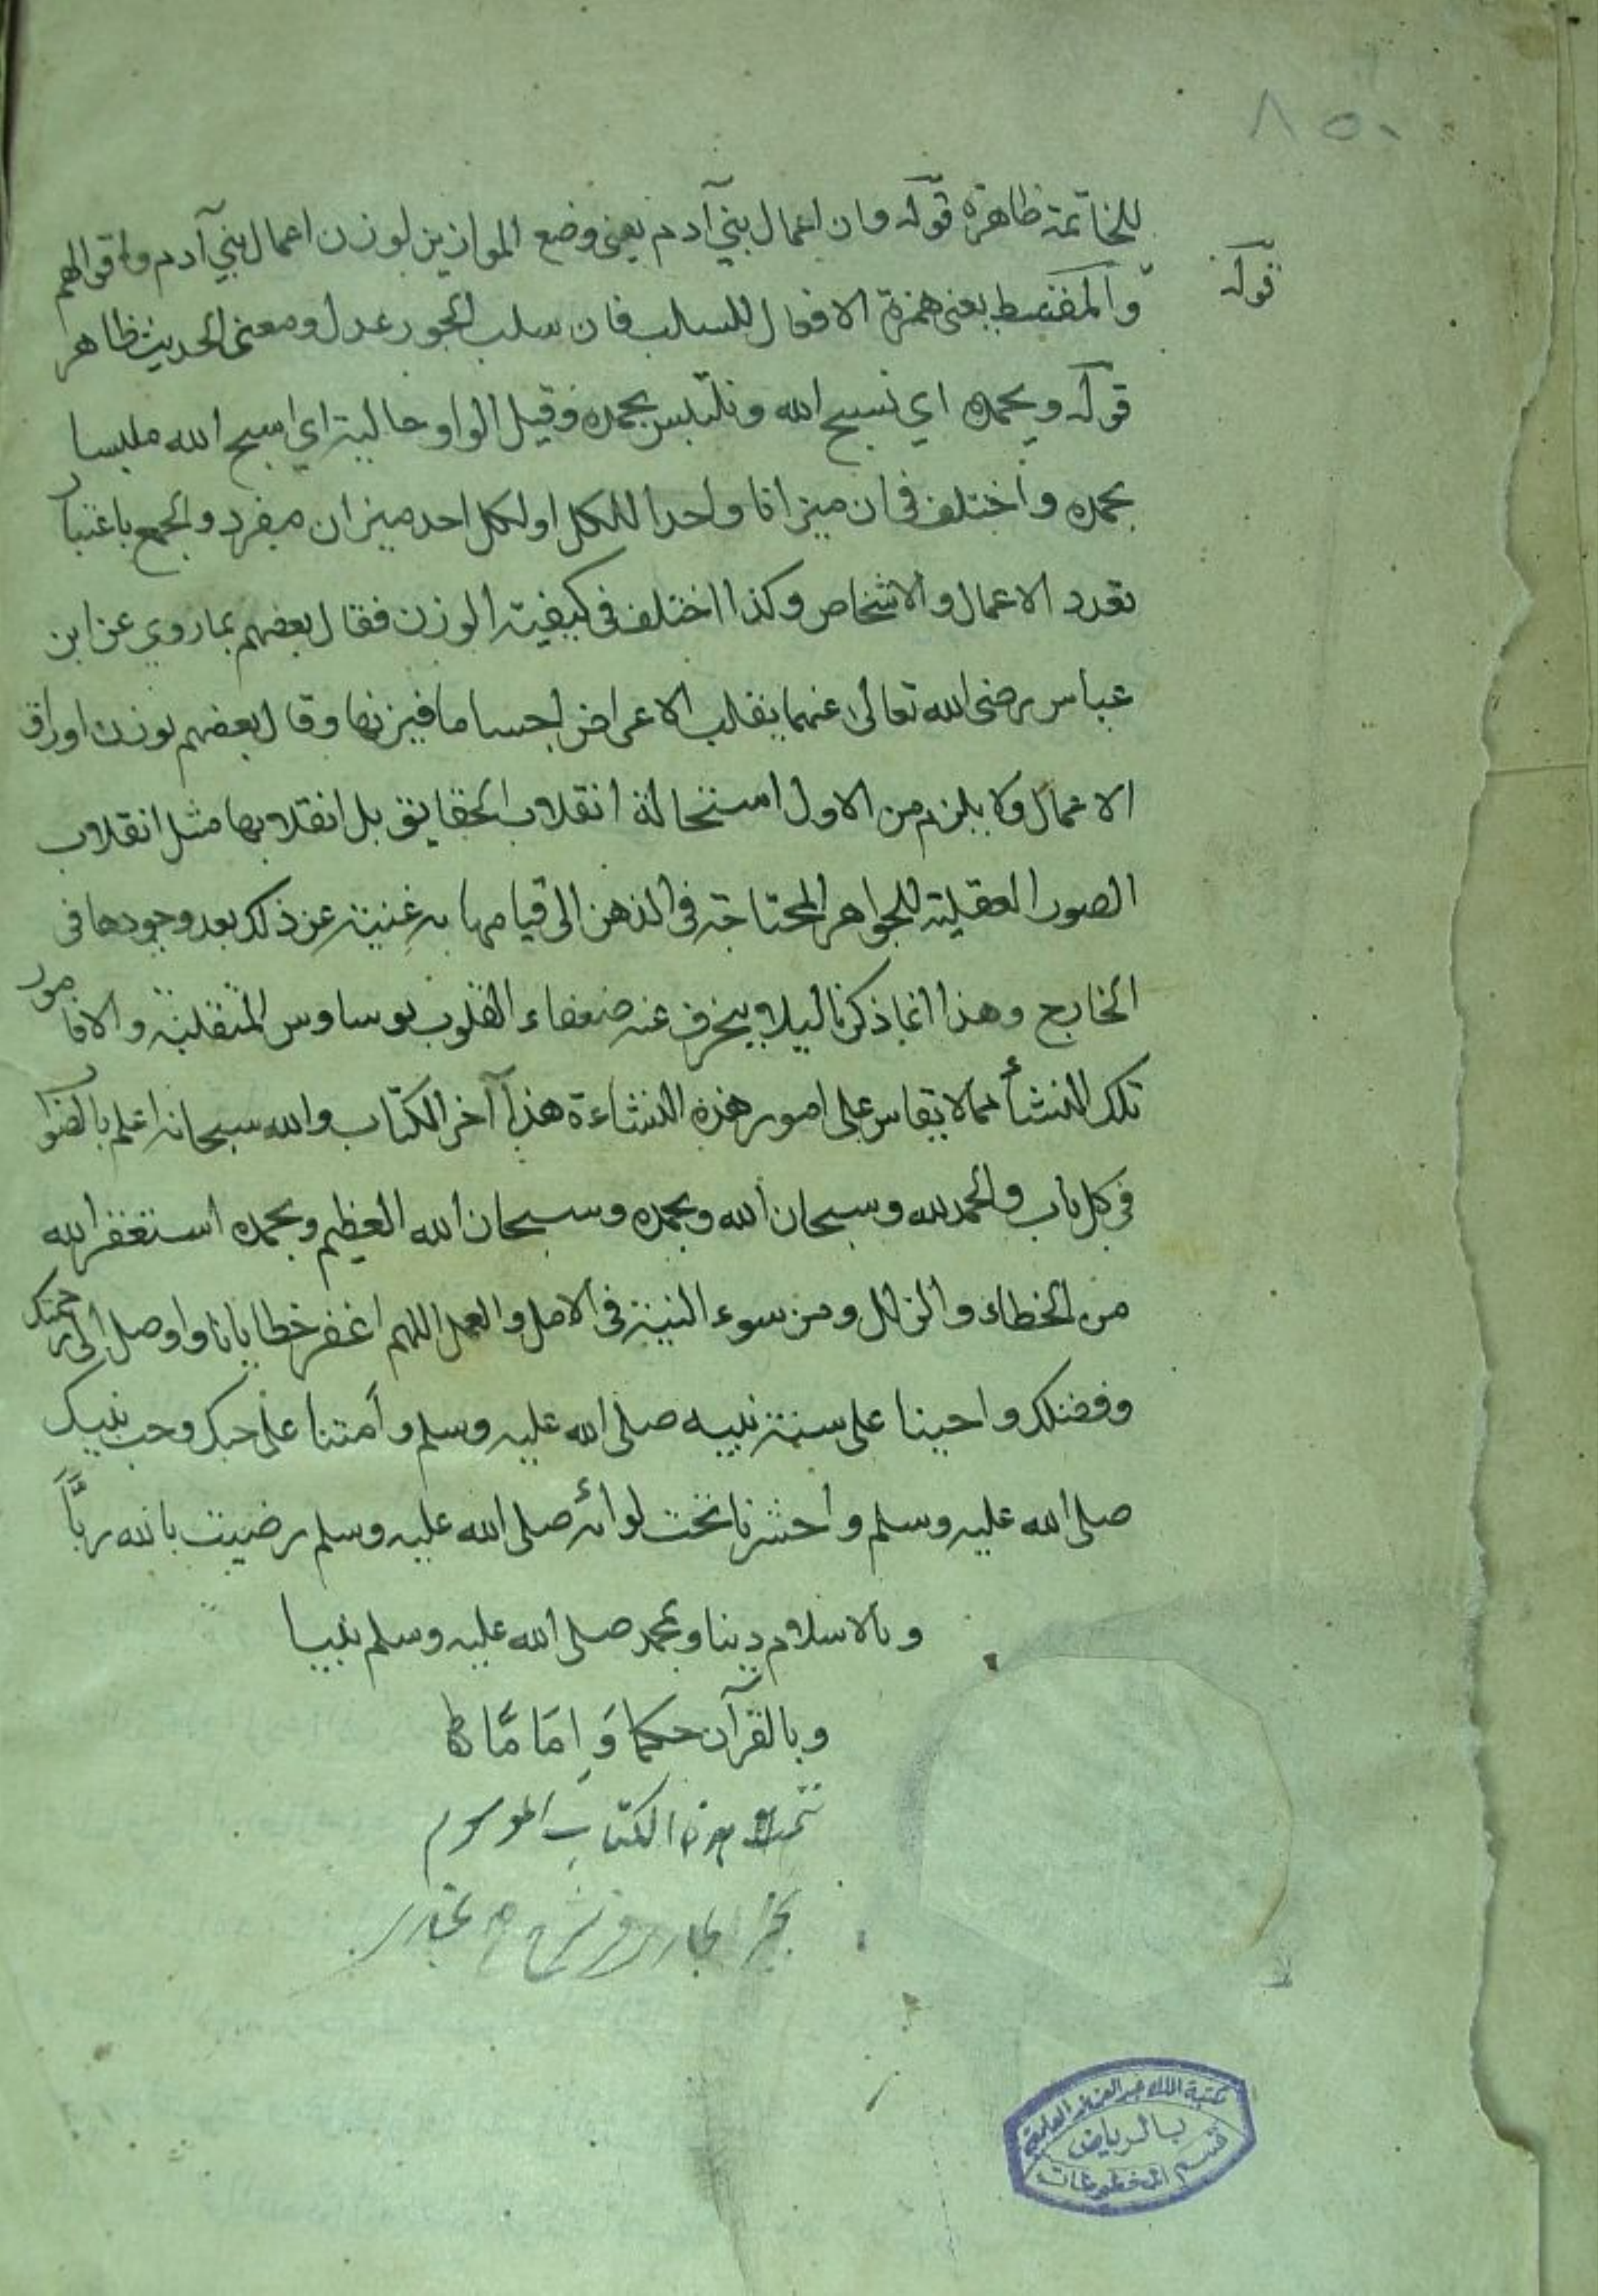 ٨٥٠
للخاتمة ظاهرة قوله وان اعمال بني آدم يعنى وضع الموازين لوزن اعمال بني آدم واقوالهم
قوله
والمقسط يعنى همزة الافعال للسلب فان سلب الجور عدل ومعنى الحديث ظاهر
قوله وبحمده اي نسبح الله ونلتبس بحمده وقيل الواو حالية اي اسبح الله ملبسا
بحمده واختلف فى ان ميزانا واحدا للكل او لكل احد ميزان مفرد والجمع باعتبار
تعدد الاعمال والاشخاص وكذا اختلف فى كيفية الوزن فقال بعضهم بما روي عن ابن
عباس رضى الله تعالى عنهما ينقلب الاعراض اجساما فيزنها وقال بعضهم يوزن اوراق
الاعمال ولا يلزم من الاول استحالة انقلاب الحقايق بل انقلابها مثل انقلاب
الصور العقلية للجواهر المحتاجة فى الذهن الى قيامها به غنية عن ذلك بعد وجودها فى
الخارج وهذا انما ذكرنا ليلا ينحرف عنه ضعفاء القلوب بوساوس المتفلسفة والا فامور
تلك النشأ مما لا يقاس على امور هذه النشاءة هذا آخر الكتاب والله سبحانه اعلم بالصواب
فى كل باب والحمد لله وسبحان الله وبحمده وسبحان الله العظيم وبحمده استغفر الله
من الخطاء والزلل ومن سوء النية فى الامل والعمل اللهم اغفر خطايانا واوصل الى رحمتك
وفضلك واحينا على سنة نبيه صلى الله عليه وسلم وأمتنا على حبك وحب نبيك
صلى الله عليه وسلم واحشرنا تحت لوائه صلى الله عليه وسلم رضيت بالله ربّاً
وبالاسلام دينا وبمحمد صلى الله عليه وسلم نبيا
وبالقرآن حكما وَاِمَامًا
تمت هذا الكتاب الموسوم
مكتبة الملك عبد العزيز العامة
بالرياض
قسم المخطوطات